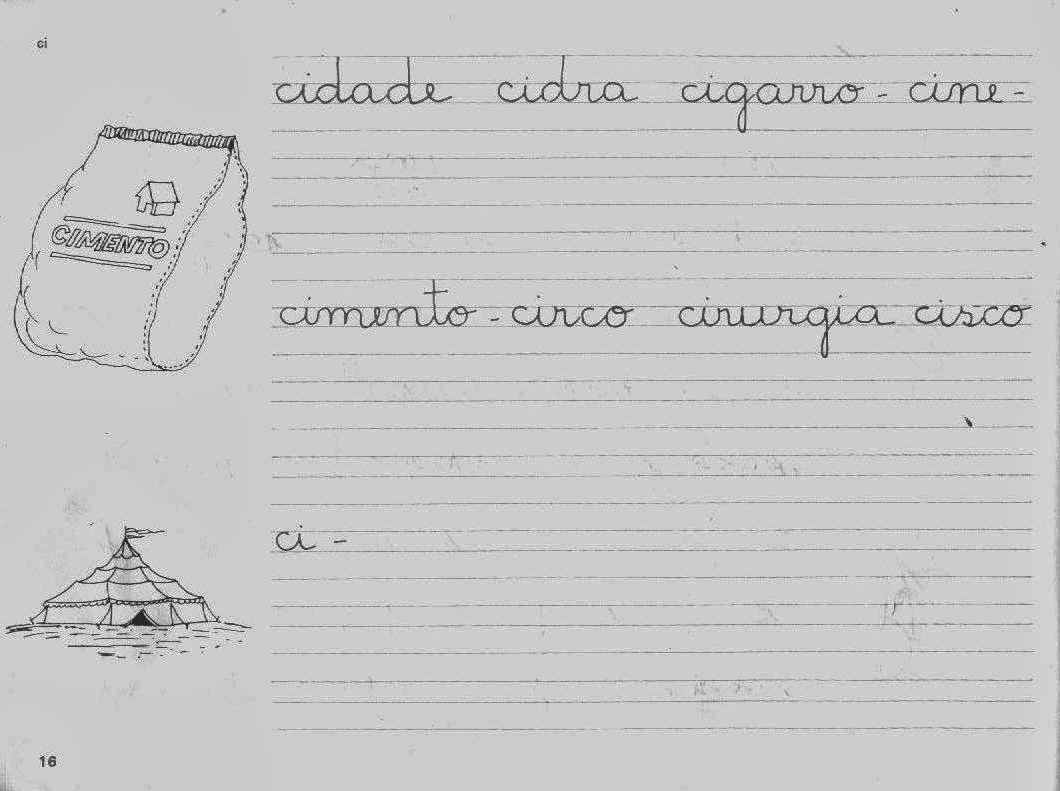 ci
cidade cidra cigarro - cine -
CIMENTO
cimento - circo cirurgia cisco
ci -
16